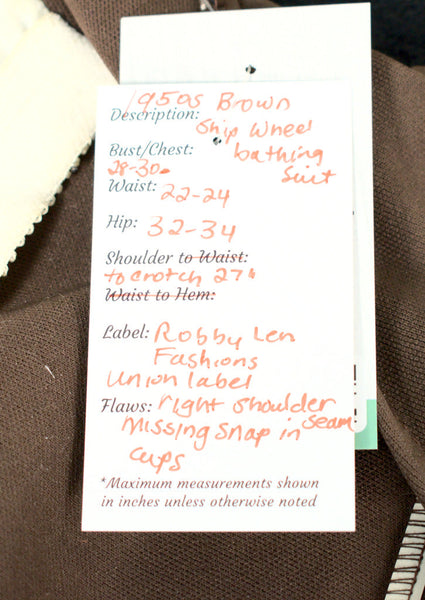 1950s Brown
Description:
Ship Wheel
Bust/Chest: bathing
28-30. Suit
Waist: 22-24
Hip: 32-34
Shoulder to Waist:
to crotch 27"
Waist to Hem:
Label: Robby Len
Fashions
Union label
Flaws: right shoulder
missing snap in seam
cups
*Maximum measurements shown
in inches unless otherwise noted